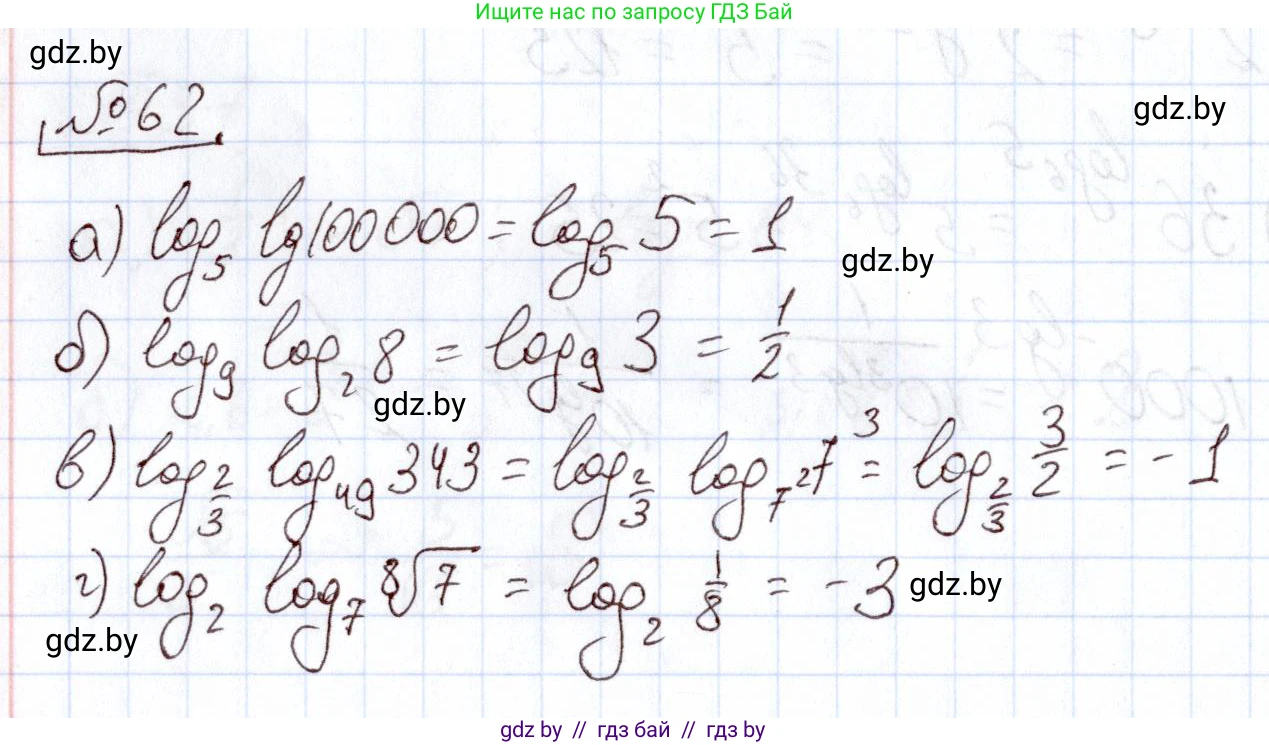 Ищите нас по запросу ГДЗ Бай
gdz.by
№62
gdz.by
а) log₅ lg100000 = log₅ 5 = 1
gdz.by
б) log₉ log₂ 8 = log₉ 3 = 1/2
gdz.by
в) log_{2/3} log₄₉ 343 = log_{2/3} log_{7²} 7³ = log_{2/3} 3/2 = -1
г) log₂ log₇ ⁸√7 = log₂ 1/8 = -3
gdz.by
gdz.by
gdz.by // гдз бай // гдз by